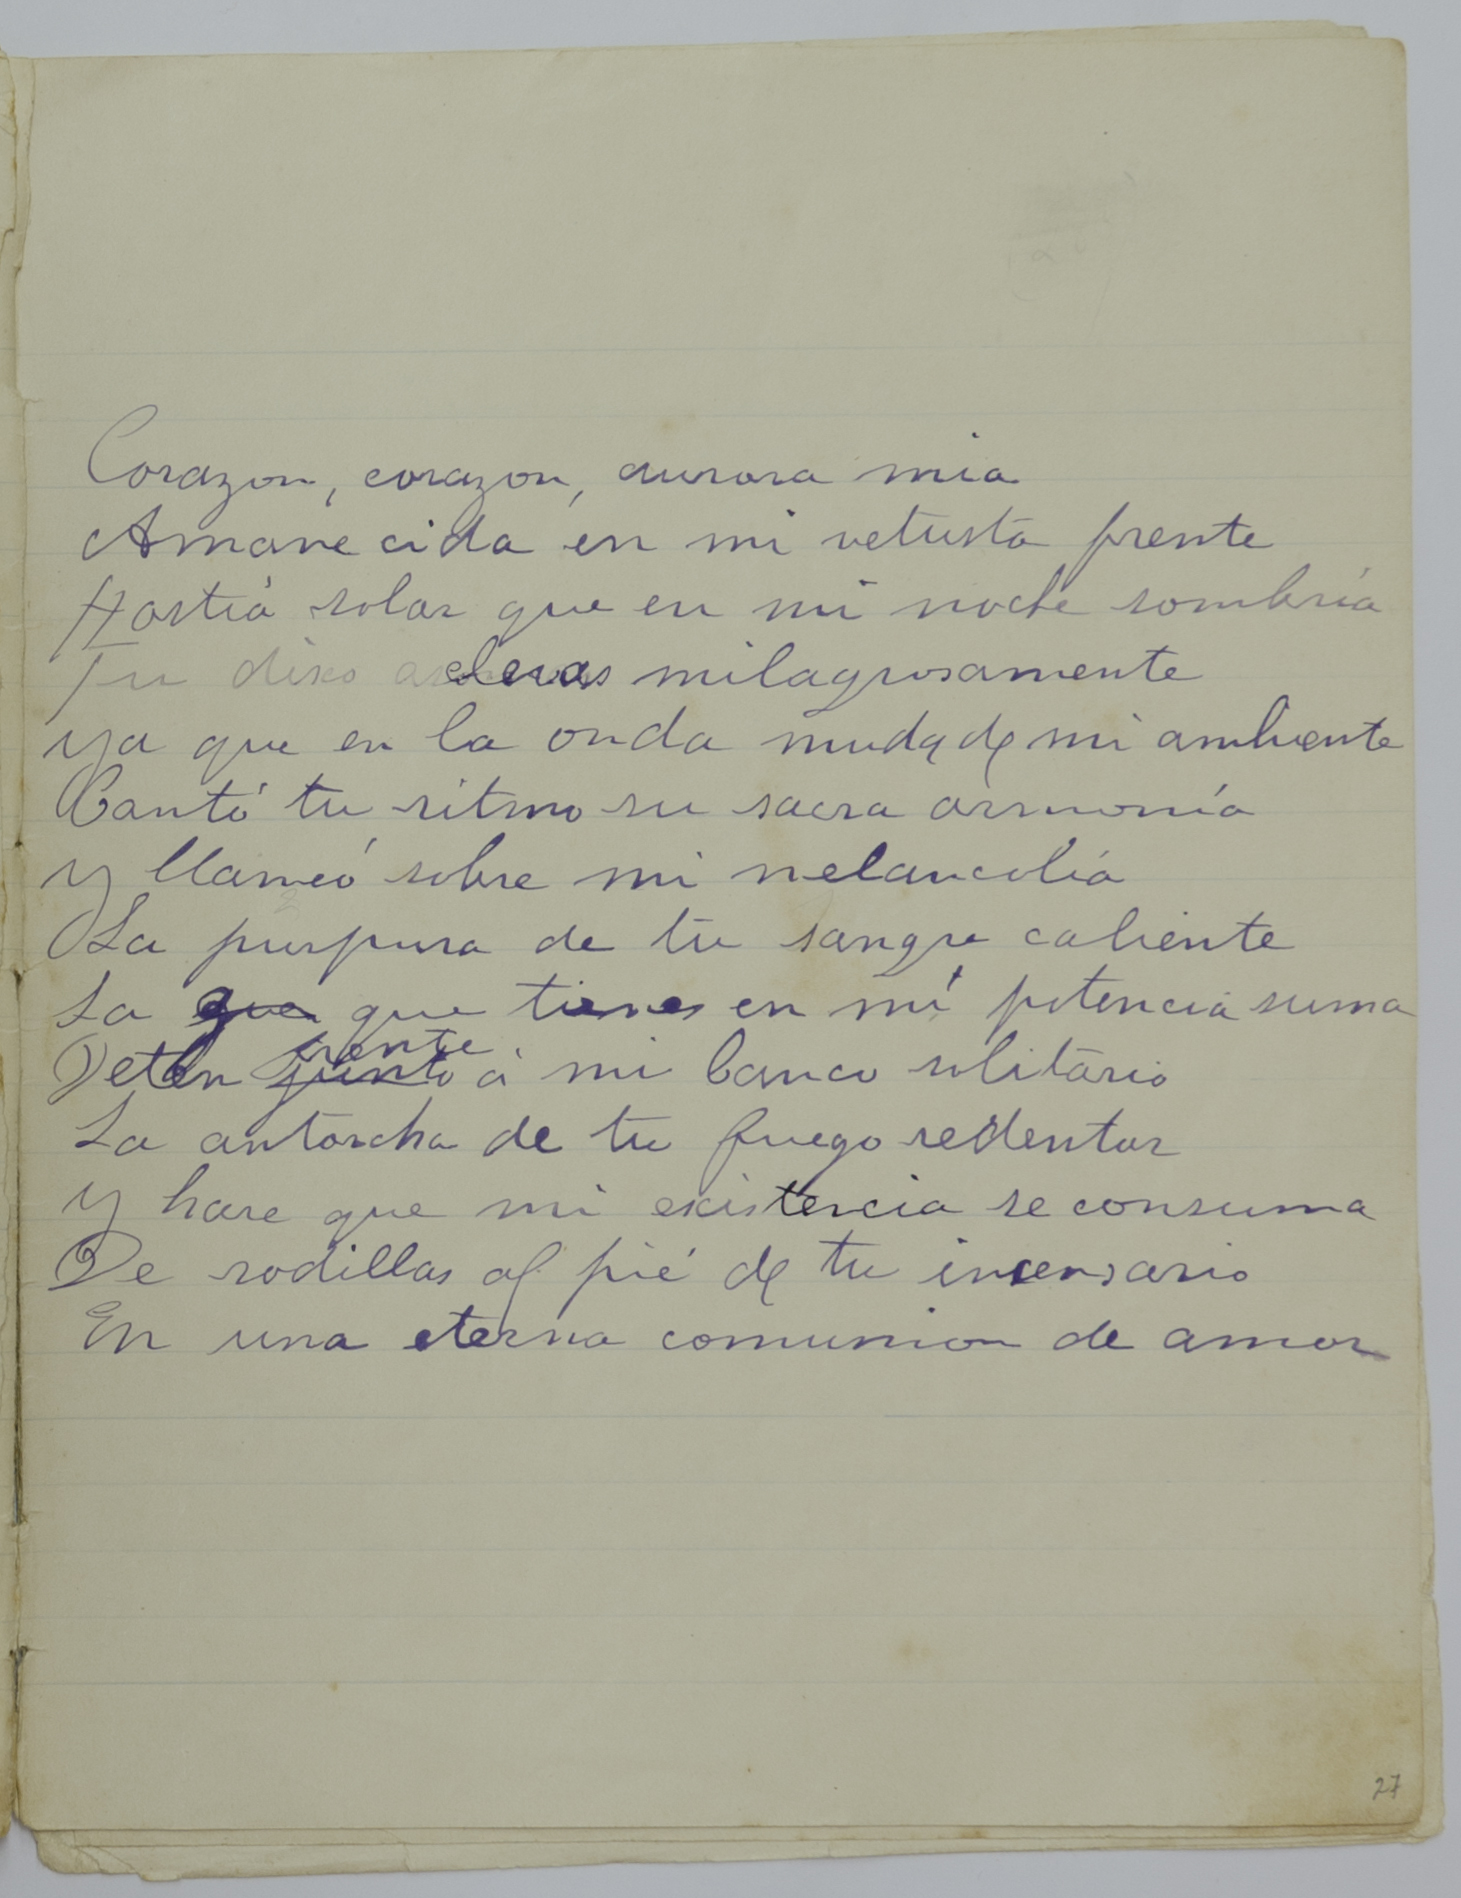 Corazon, corazon, aurora mia
Amanecida en mi vetusta frente
Hostia solar que en mi noche sombría
Tu disco elevas milagrosamente
ya que en la onda muda de mi ambiente
Cantó tu ritmo su sacra armonía
y llameó sobre mi melancolía
La purpura de tu sangre caliente
La que que tienes en mí potencia suma
frente
Deten junto a mi banco solitario
La antorcha de tu fuego redentor
y hare que mi existencia se consuma
De rodillas al pié de tu incensario
En una eterna comunion de amor
27